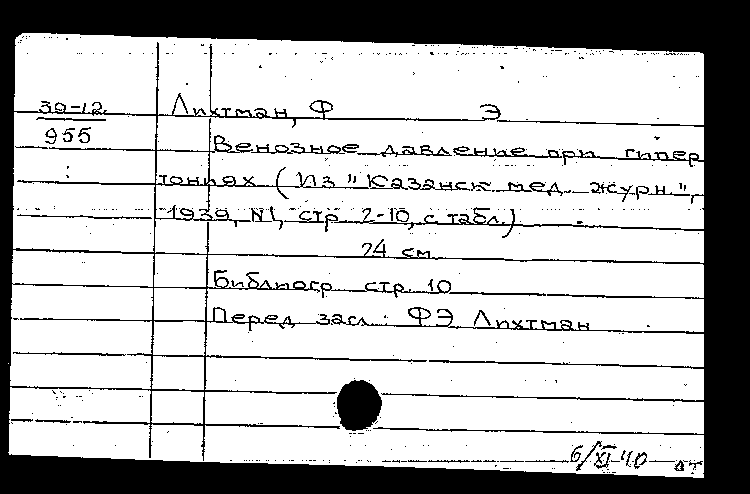 39-12
955
Лихтман, Ф Э
Венозное давление при гипер
тониях (Из "Казанск мед. журн.",
1939, №1, стр 2-10, с табл.)
24 см.
Библиогр стр. 10
Перед загл: ФЭ Лихтман
6/XI 40 ат